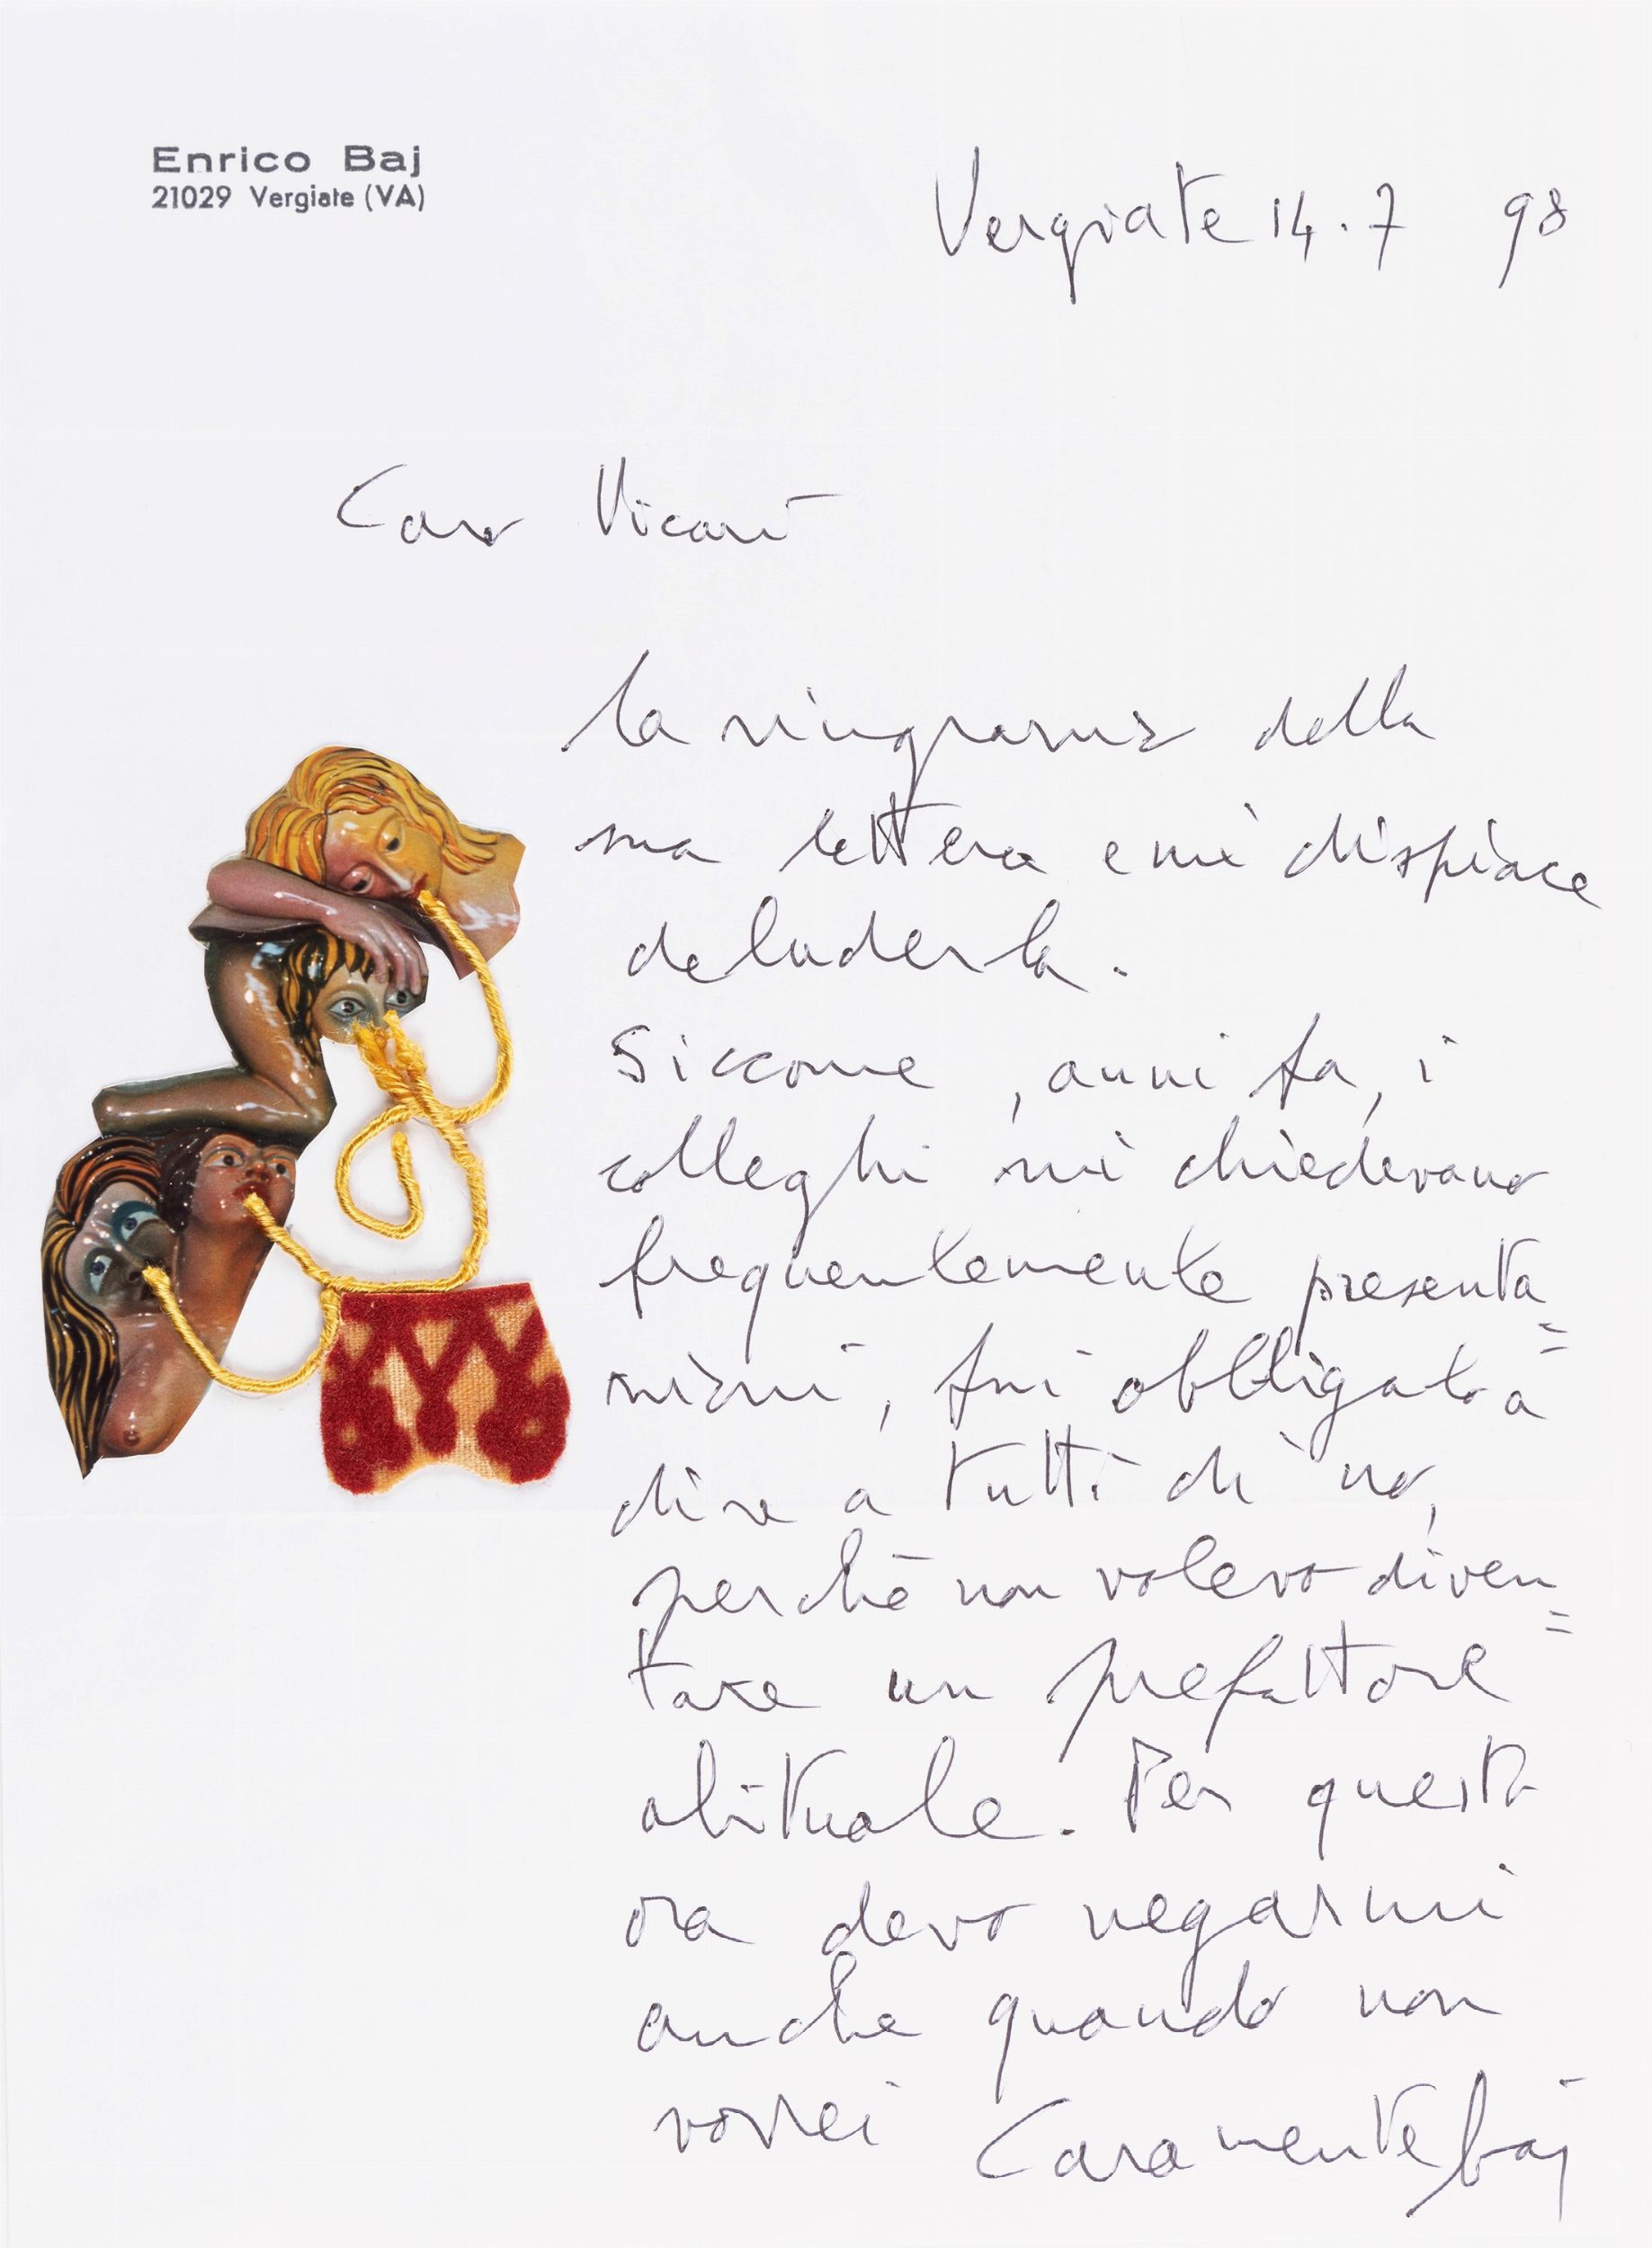 Enrico Baj
21029 Vergiate (VA)
Vergiate 14.7 98
Caro Vicari
la ringrazio della
sua lettera e mi dispiace
deluderla.
Siccome, anni fa, i
colleghi mi chiedevano
frequentemente presenta=
zioni, fui obbligato a
dire a tutti di no,
perché non volevo diven=
tare un prefattore
abituale. Per questo
ora devo negarmi
anche quando non
vorrei Caramente baj